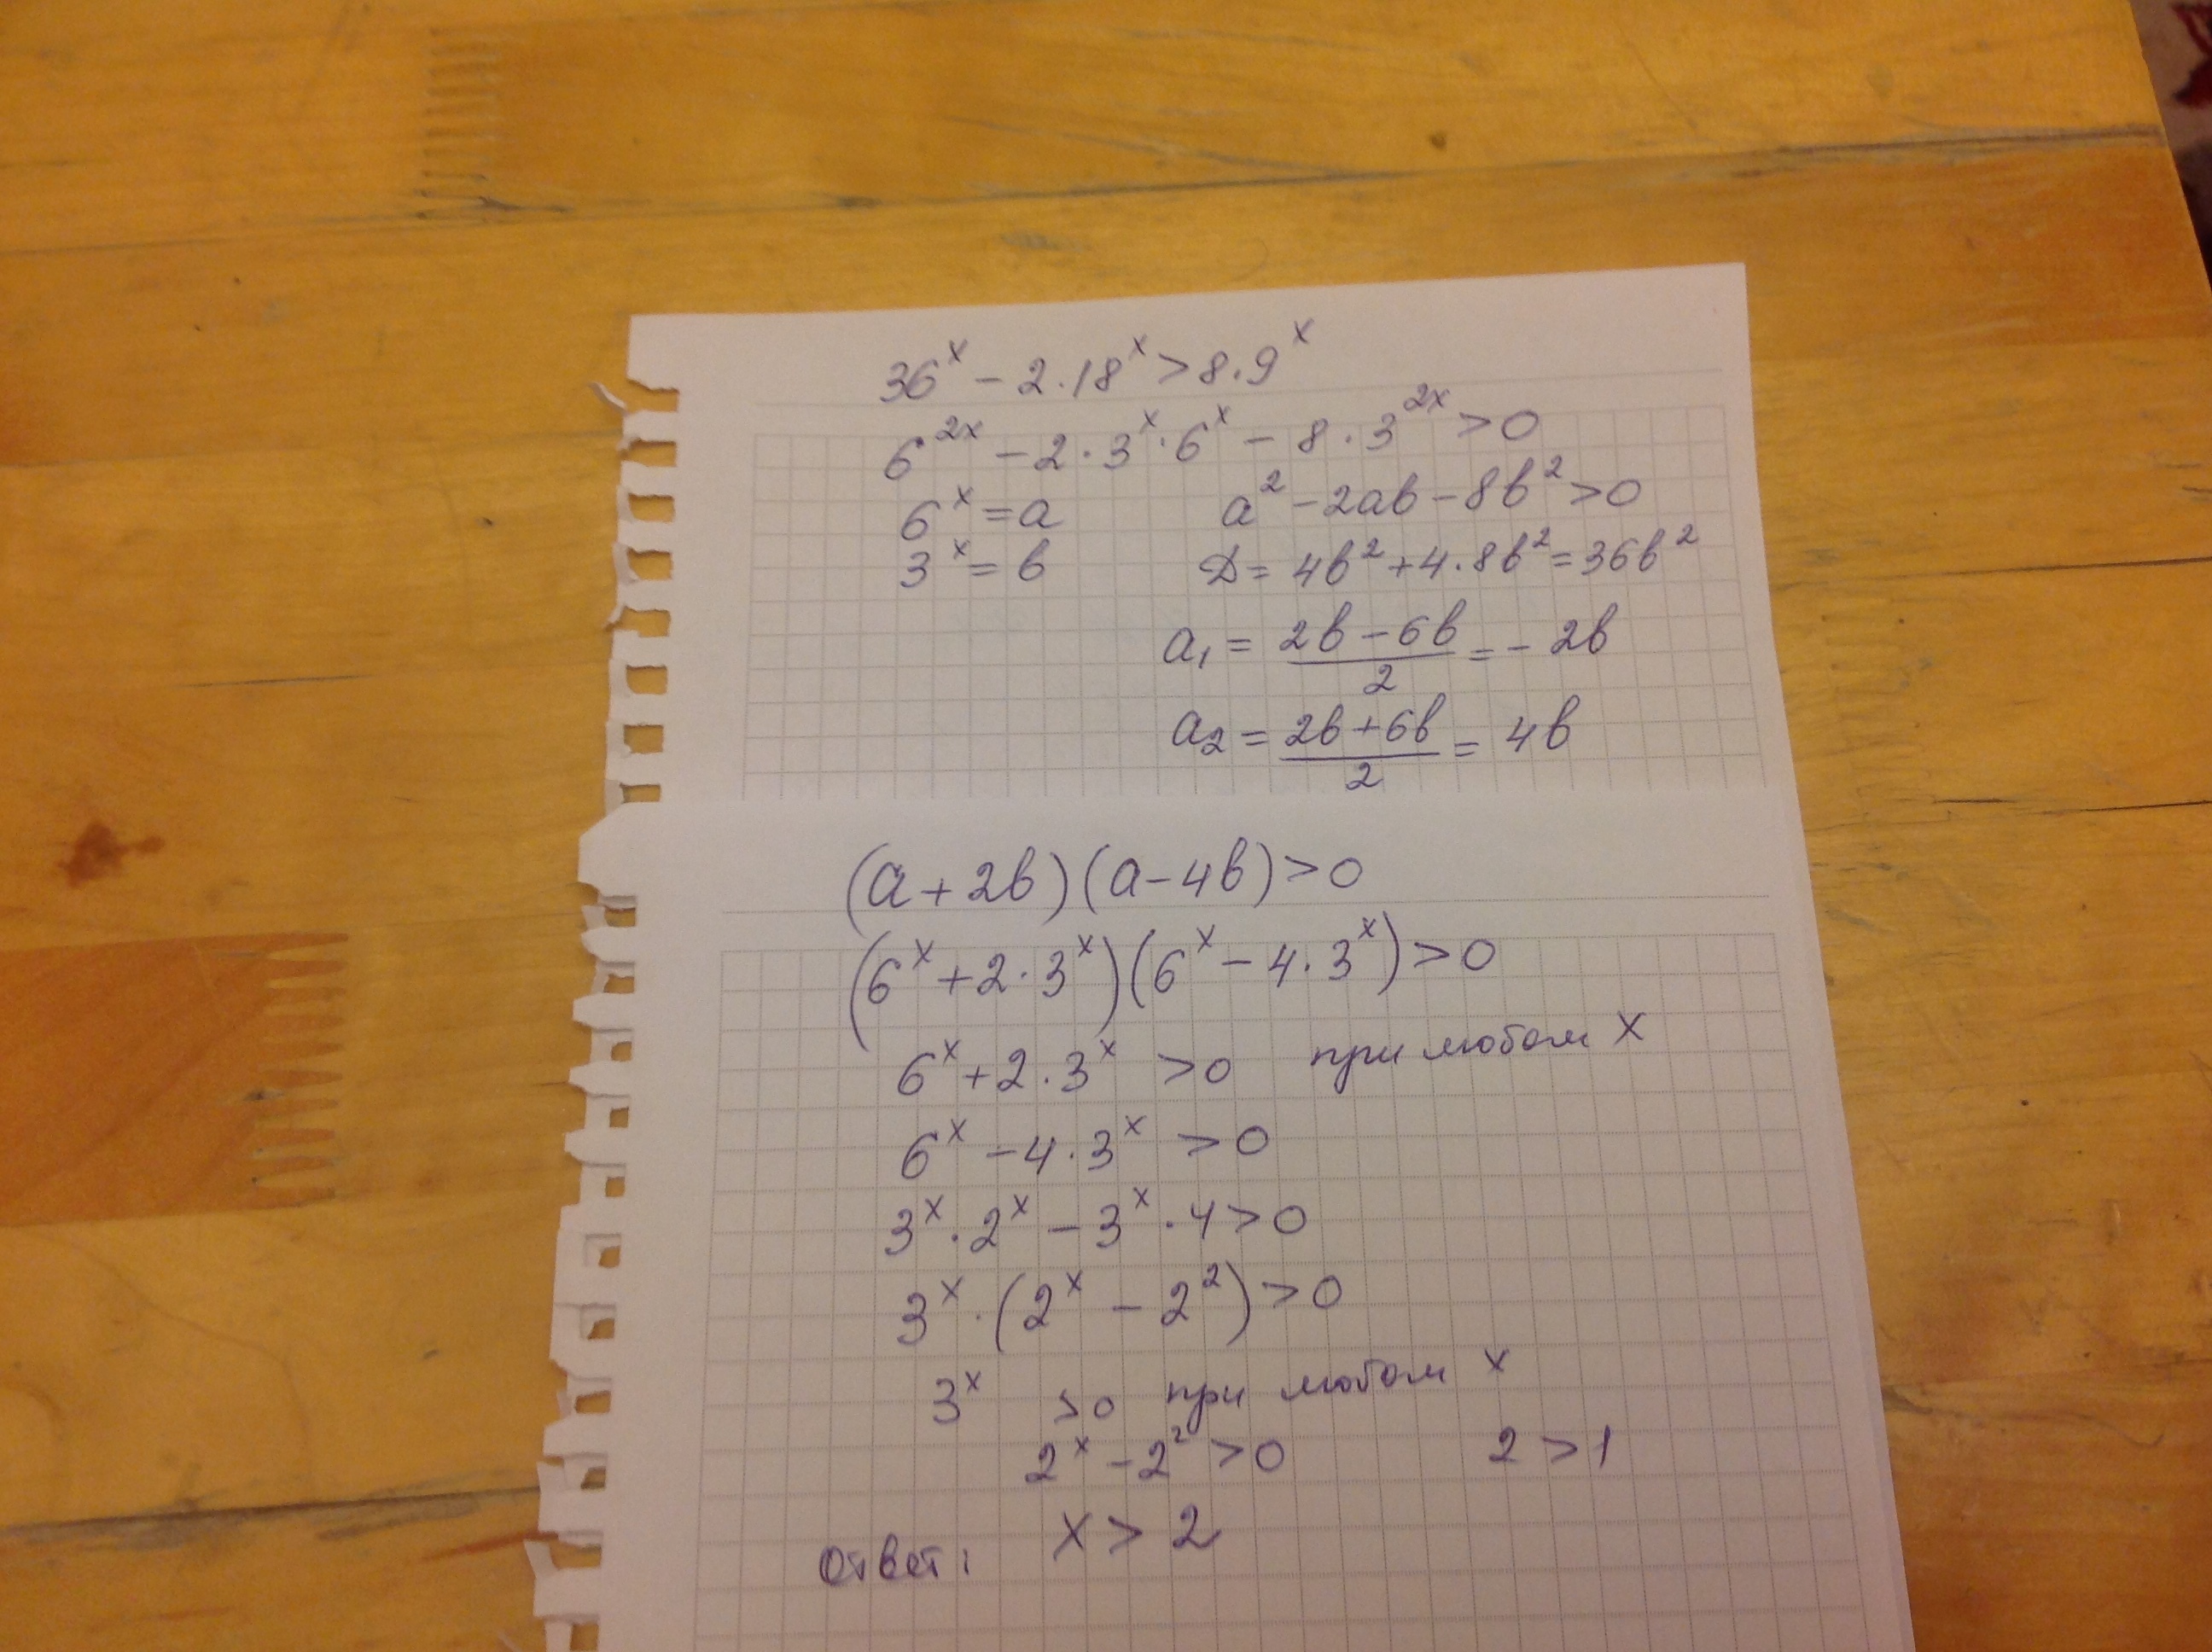 36^x - 2·18^x > 8·9^x
6^2x - 2·3^x·6^x - 8·3^2x > 0
6^x = a a² - 2ab - 8b² > 0
3^x = b D = 4b² + 4·8b² = 36b²
a₁ = (2b - 6b)/2 = - 2b
a₂ = (2b + 6b)/2 = 4b
(a + 2b)(a - 4b) > 0
(6^x + 2·3^x)(6^x - 4·3^x) > 0
6^x + 2·3^x > 0 при любом x
6^x - 4·3^x > 0
3^x·2^x - 3^x·4 > 0
3^x·(2^x - 2²) > 0
3^x > 0 при любом x
2^x - 2² > 0 2 > 1
Ответ: x > 2